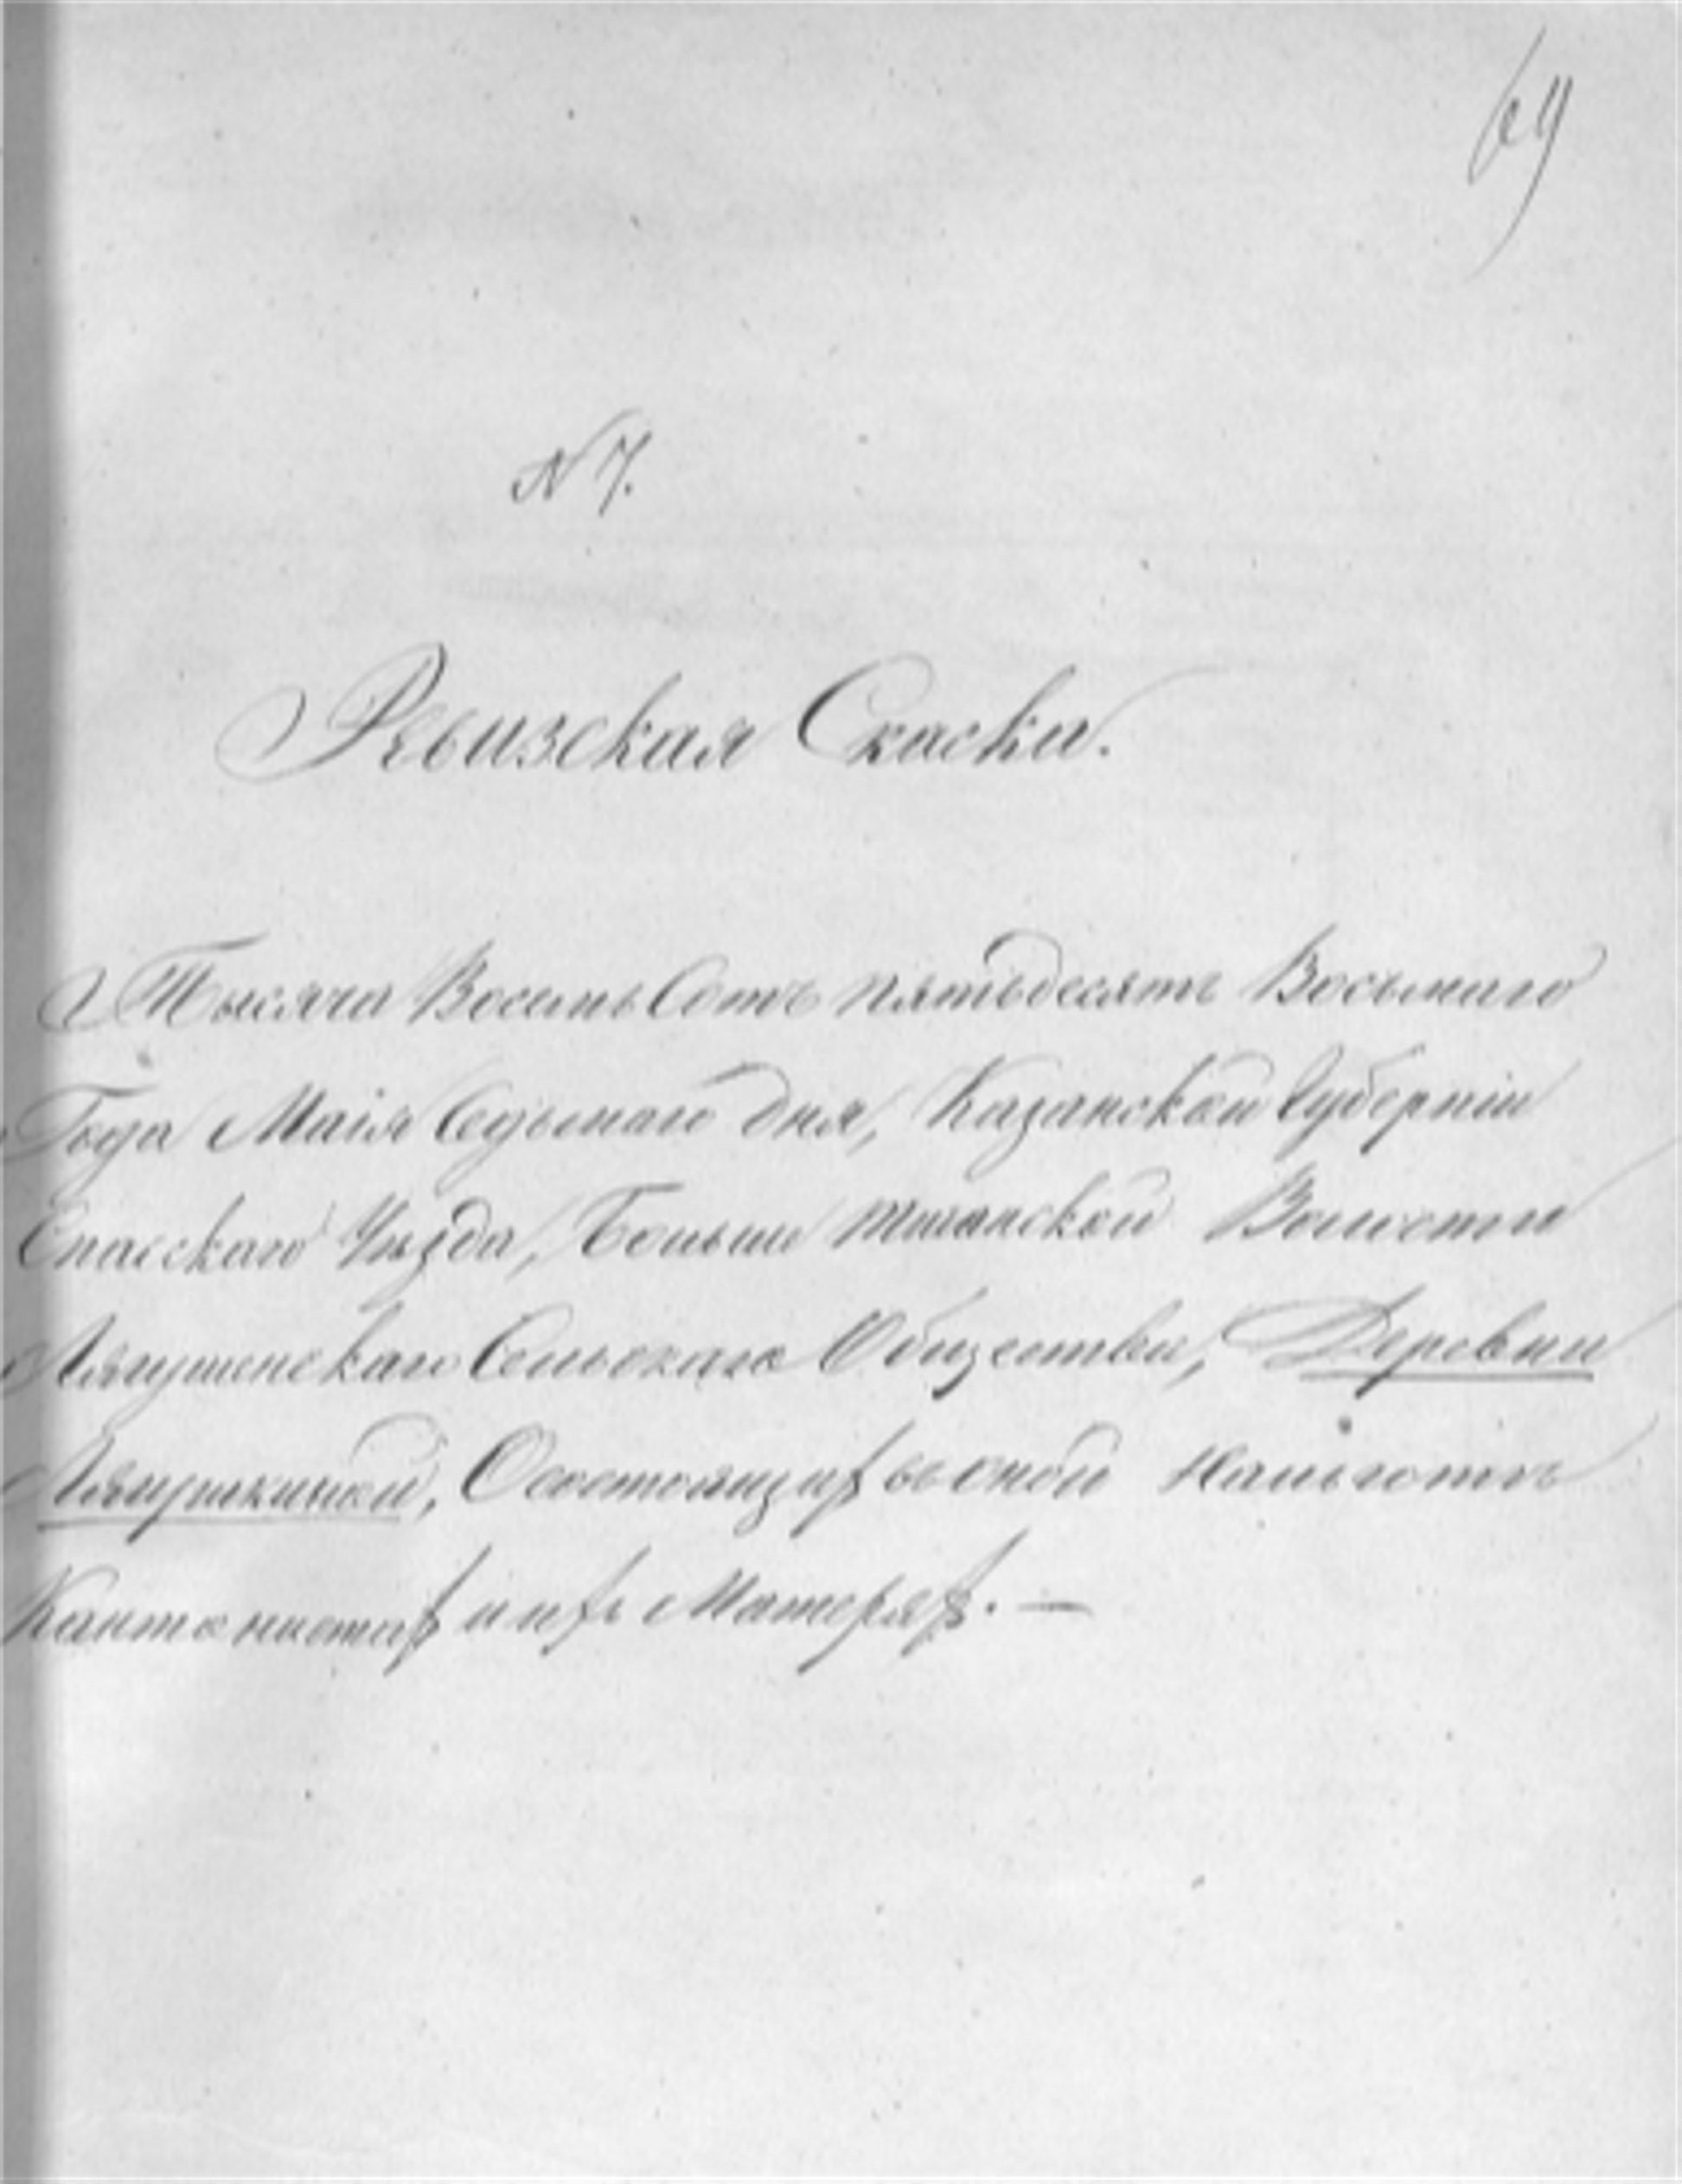 69
№ 7.
Ревизская Сказка.
Тысяча Восемь Сотъ пятьдесятъ Восьмаго
Года Маія Седьмаго дня, Казанской Губерніи
Спасскаго Уѣзда, Больше Тиганской Волости
Лягушенскаго Сельскаго Общества, Деревни
Лягушкиной, О состоящих въ оной
Кантонистах и их Матерях. —